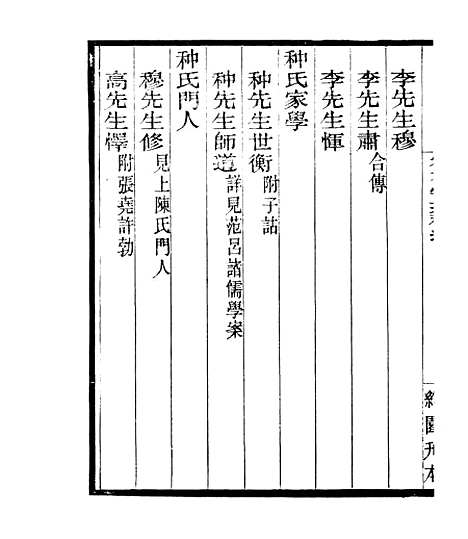 約園刊本
李先生穆
李先生肅 合傳
李先生惲
种氏家學
种先生世衡 附子詁
种先生師道 詳見范呂諸儒學案
种氏門人
穆先生修 見上陳氏門人
高先生懌 附張蕘許勃